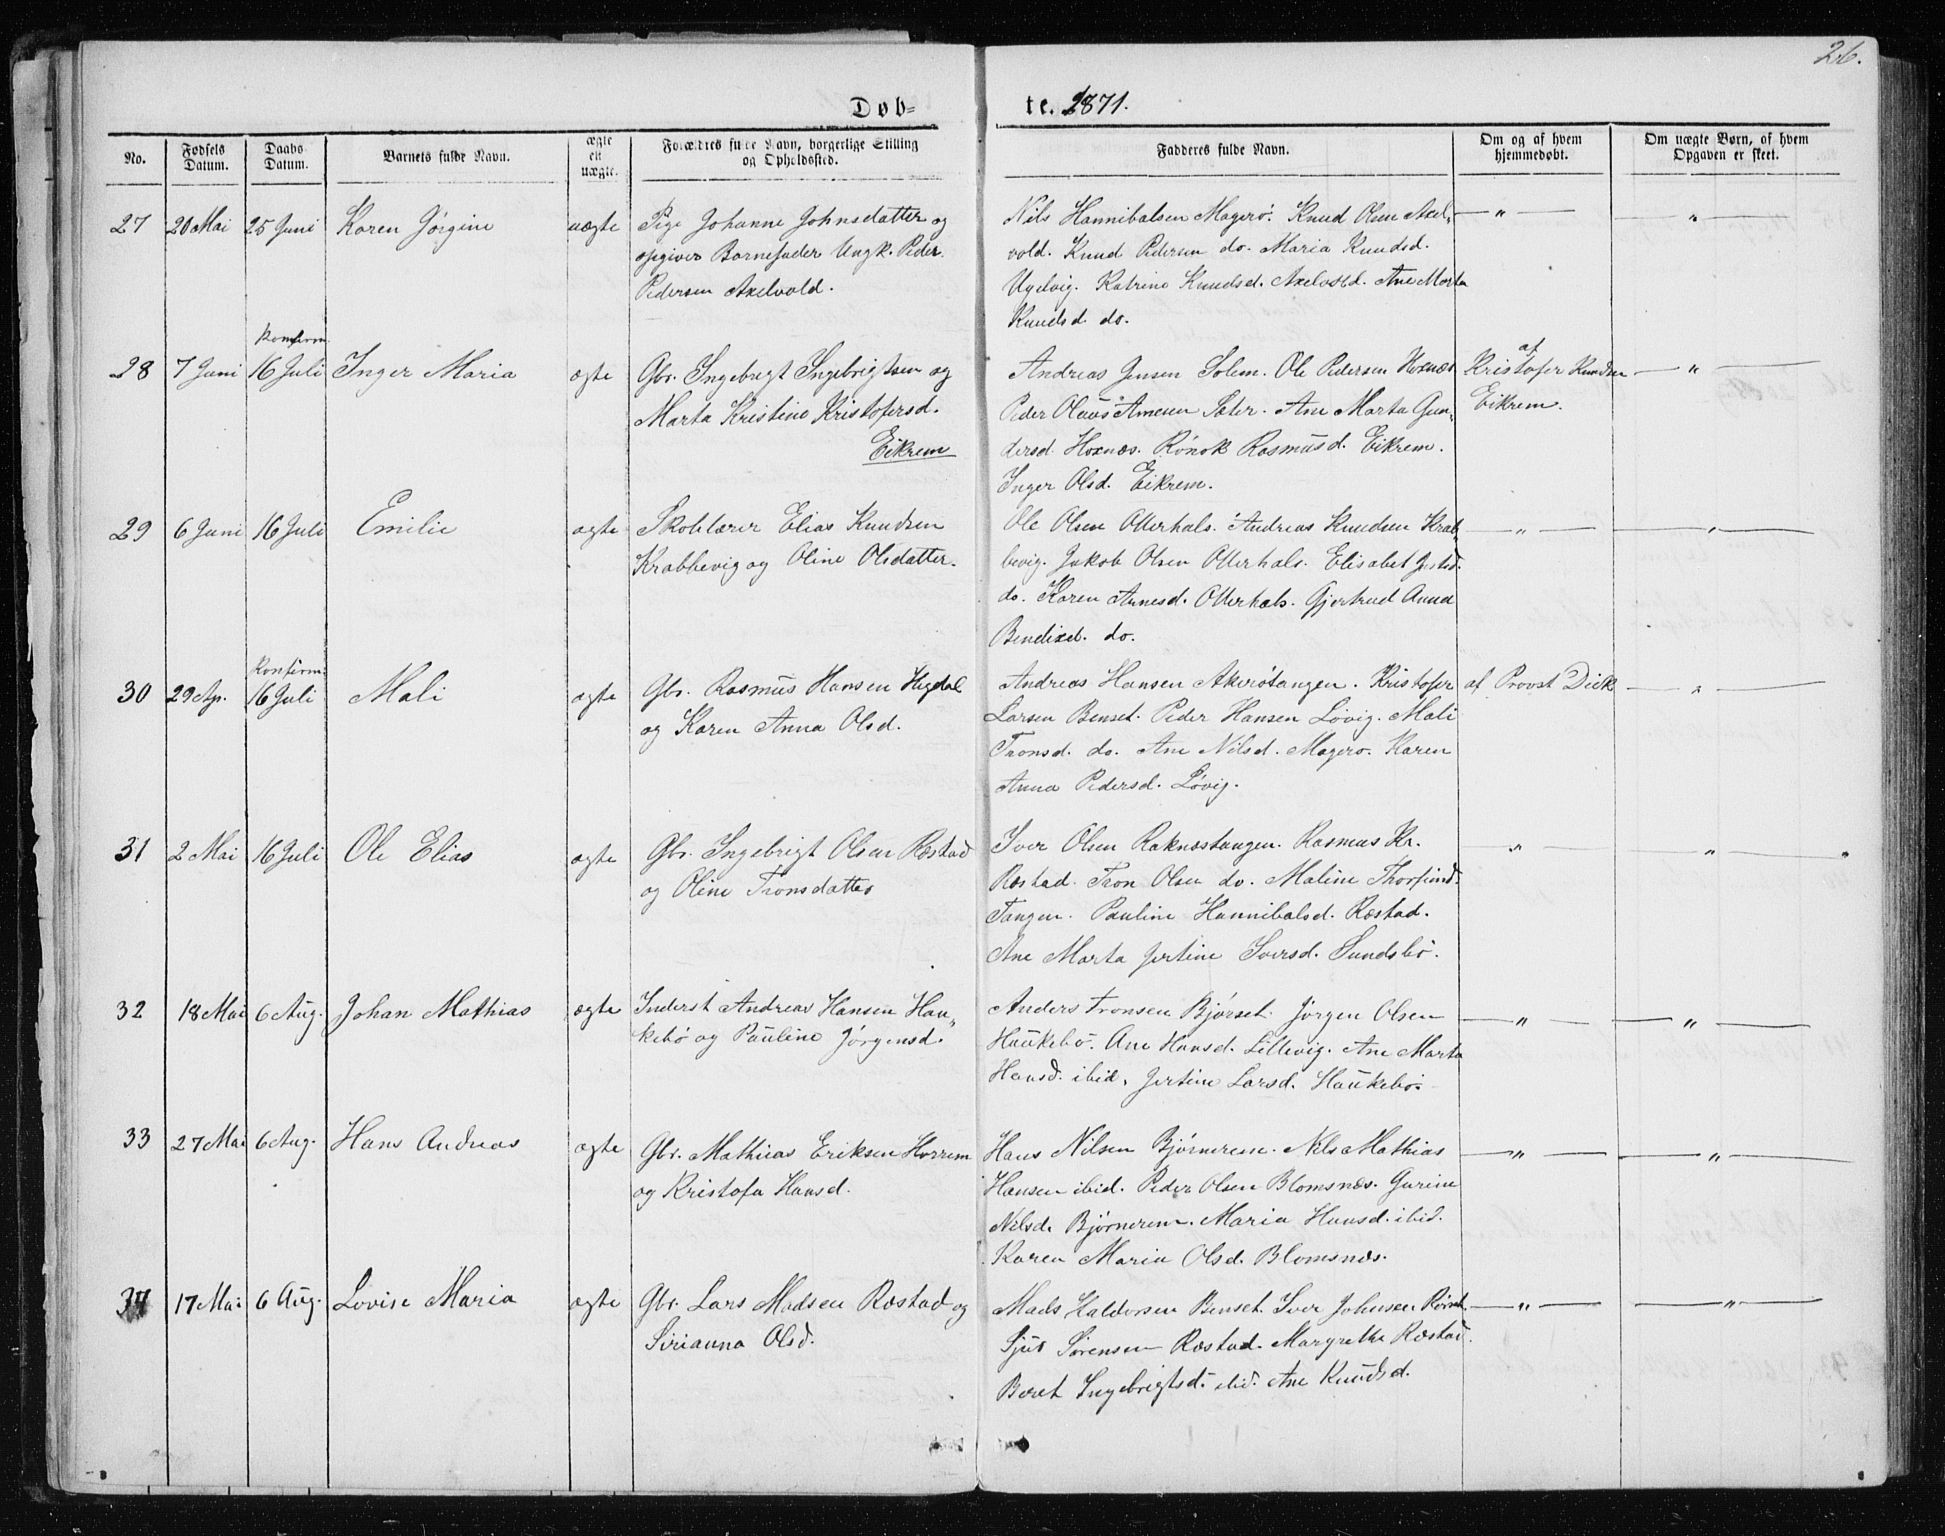 26.
Døb= te. 1871.
No. Fødsels Datum. Daabs Datum. Barnets fulde Navn. ægte ell uægte. Forældres fulde Navn, borgerlige Stilling og Opholdssted. Fadderes fulde Navn. Om og af hvem hjemmedøbt. Om uægte Børn, af hvem Opgaven er skeet.
27 20 Mai 25 Juni Karen Jørgine uægte Pige Johanne Johnsdatter og Nils Hannibalsen Magerø. Knud Olsen Axel- — " — — " —
opgiver Barnefader Ungk. Peder vold. Knud Pedersen do. Maria Knudsd.
Pedersen Axelvold. Katrine Knudsd. Axelvold. Ane Marta
Knudsd. do.
Konfirm.
28 7 Juni 16 Juli Inger Maria ægte Gbr. Ingebrigt Ingebrigtsen og Andreas Jensen Solem. Ole Pedersen Hoxnæs af Kristofer Knudsen — " —
Marta Kristine Kristofersd. Peder Olaus Amenn Sæter. Ane Marta Gun- Eikrem.
Eikrem dersd. Hoxnæs. Rønok Rasmusd. Eikrem.
Inger Olsd. Eikrem.
29 6 Juni 16 Juli Emilie ægte Skolelærer Elias Knudsen Ole Olsen Otterhals. Andreas Knudsen Krab- — " — — " —
Krabbevig og Oline Olsdatter. bevig. Jakob Olsen Otterhals. Elisabet
do. Karen Arnesd. Otterhals. Gjertrud Anna
Bendixd. do.
Konfirm.
30 29 Ap. 16 Juli Mali ægte Gbr. Rasmus Hansen Hegdal Andreas Hansen Akerøtangen. Kristofer af Provst Deik — " —
og Karen Anna Olsd. Larsen Benset. Peder Hansen Løvig. Mali
Tronsd. do. Ane Nilsd. Magerø. Karen
Anna Pedersd. Løvig.
31 2 Mai 16 Juli Ole Elias ægte Gbr. Ingebrigt Olsen Røstad Iver Olsen Raknestangen. Rasmus Kr. " — — " —
og Oline Tronsdatter Røstad. Tron Olsen do. Maline Thorfind.
Tangen. Pauline Hannibalsd. Røstad.
Ane Marta Jertine Iversd. Sundsbø.
32 18 Mai 6 Aug. Johan Mathias ægte Inderst Andreas Hansen Hau- Anders Tronsen Bjørset. Jørgen Olsen — " — — " —
kebø og Pauline Jørgensd. Haukebø. Ane Hansd. Lillevig. Ane Marta
Hansd. ibid. Jertine Larsd. Haukebø.
33 27 Mai 6 Aug. Hans Andreas ægte Gbr. Mathias Eriksen Horrem Hans Nilsen Bjørnerem. Nils Mathias — " — — " —
og Kristofa Hansd. Hansen ibid. Peder Olsen Blomsnæs. Gurine
Nilsd. Bjørnerem. Maria Hansd. ibid.
Karen Maria Olsd. Blomsnæs.
34 17 Mai 6 Aug. Lovise Maria ægte Gbr. Lars Madsen Røstad og Mads Haldorsen Benset. Iver Johnsen Rørset — " — — " —
Sirianna Olsd. Sjur Sørensen Røstad. Margrethe Røstad.
Beret Ingebrigtsd. ibid. Ane Knudsd.